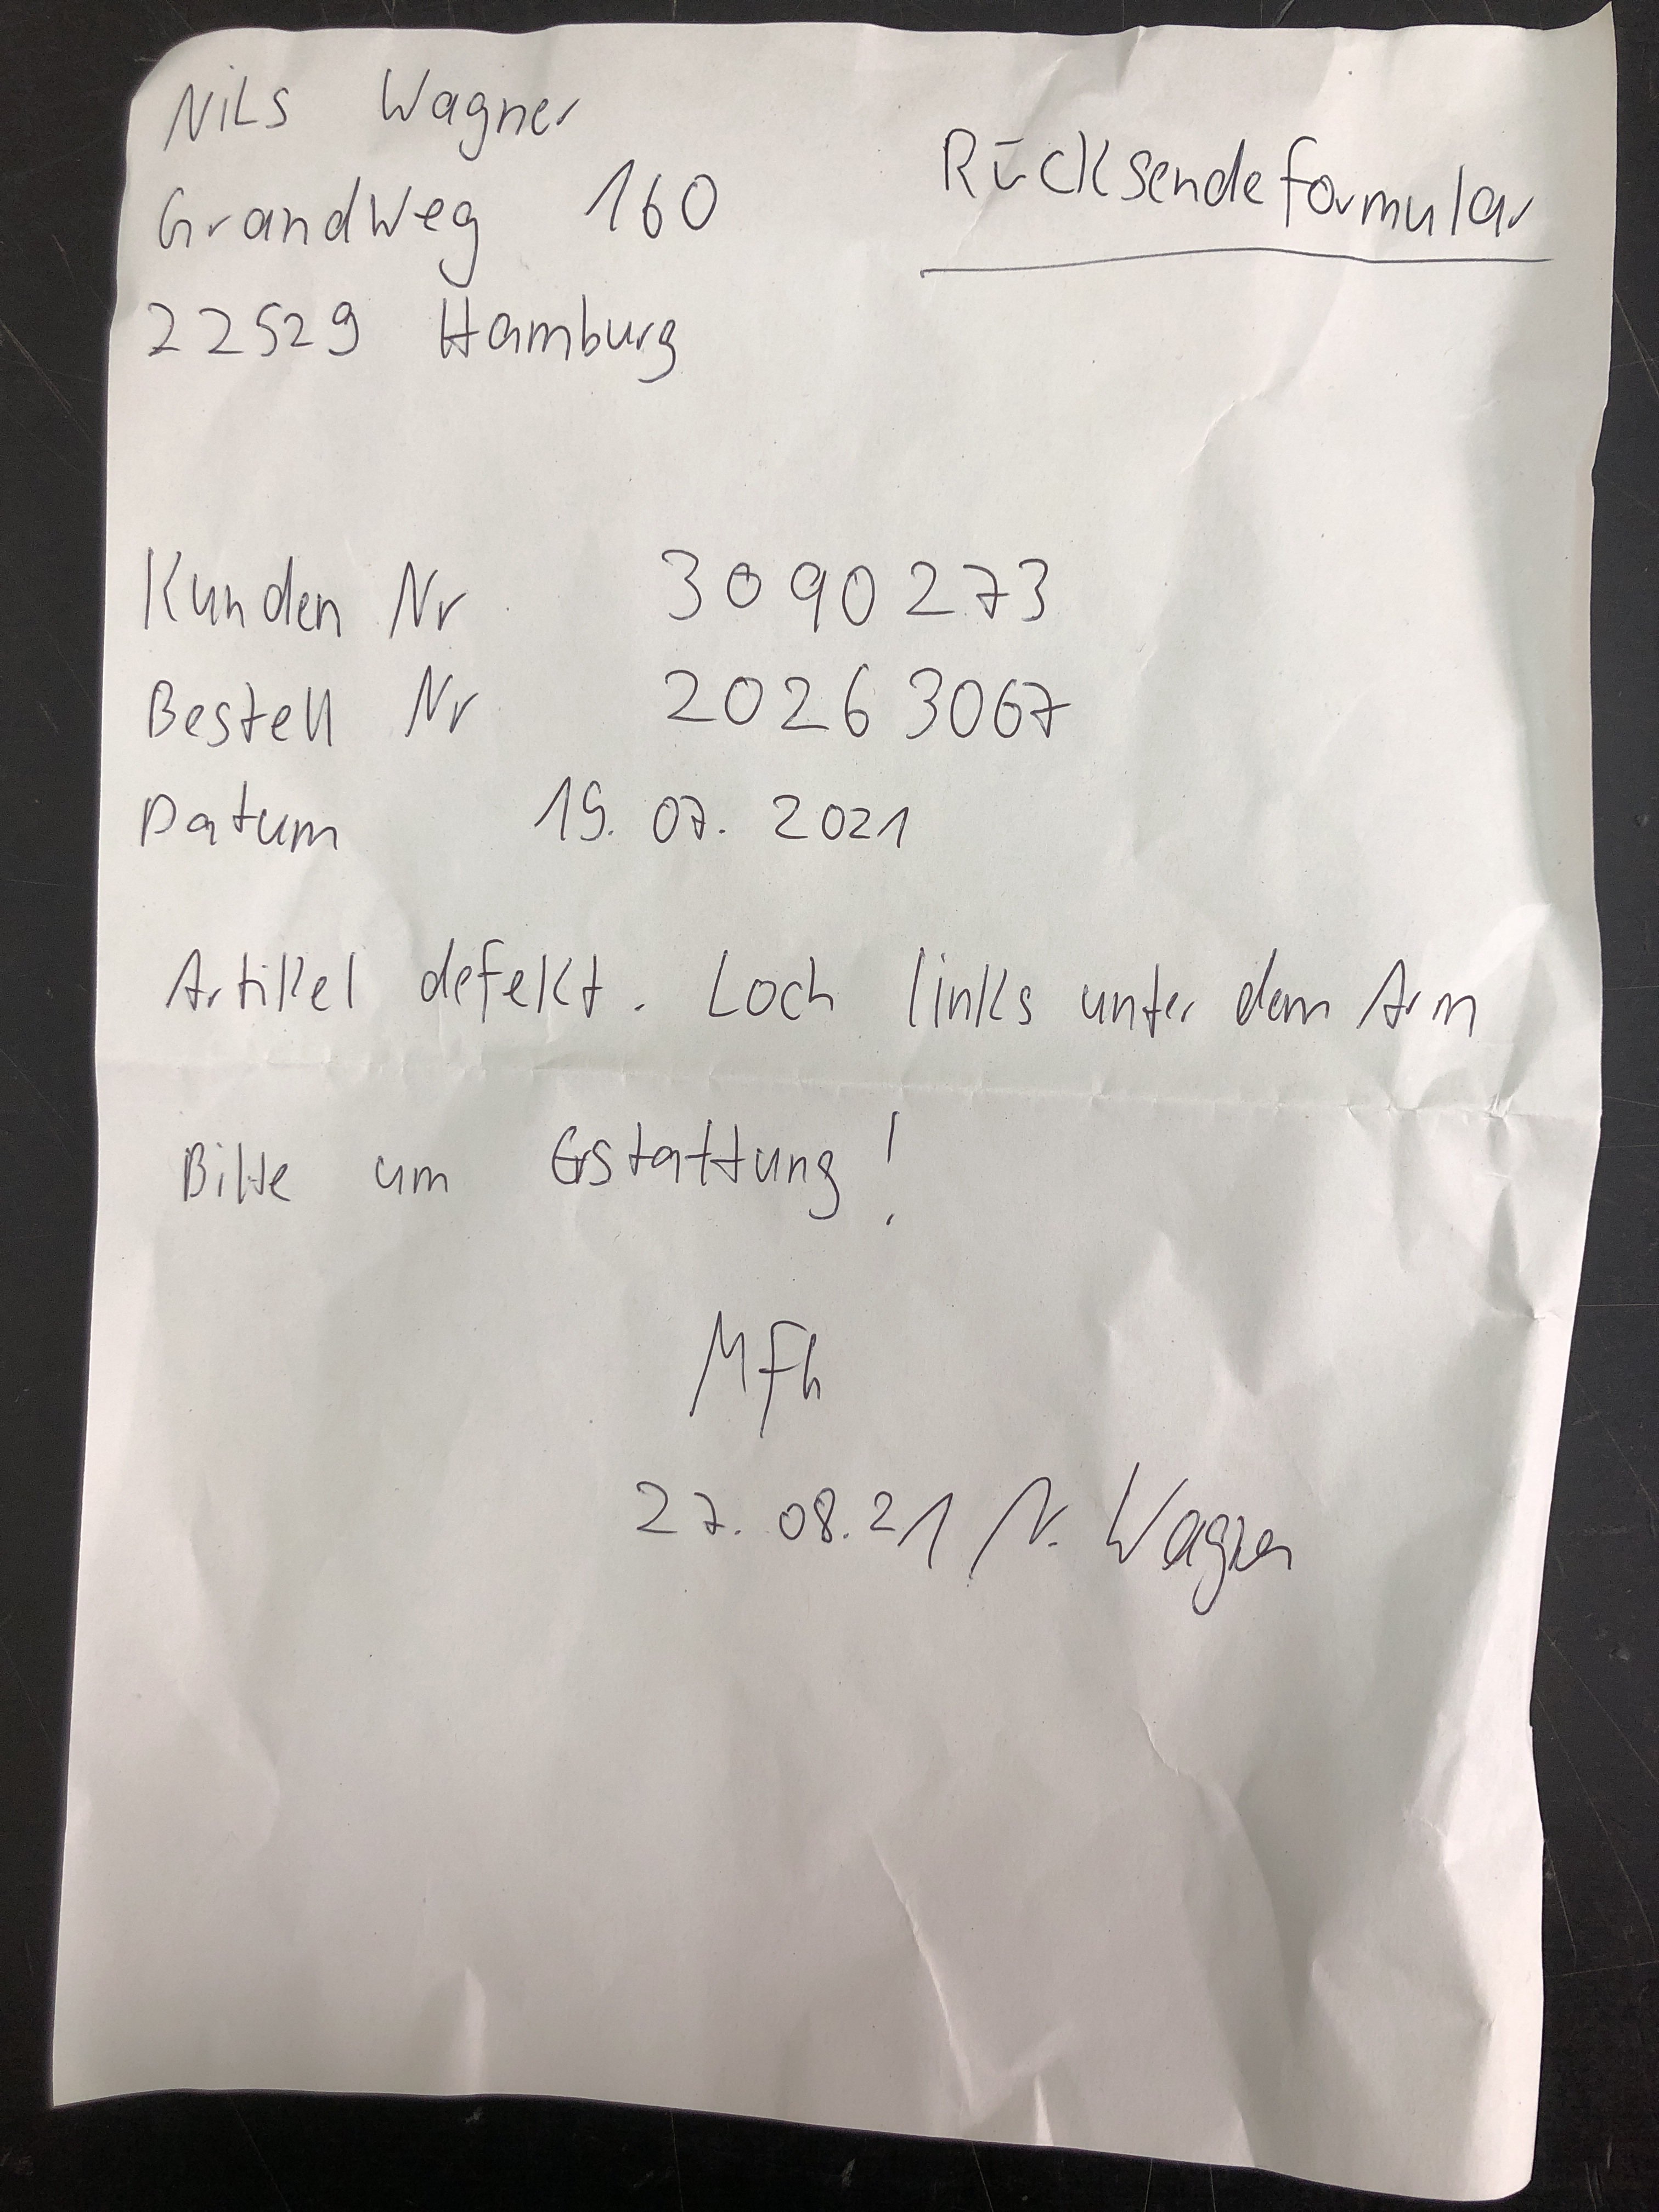 Nils Wagner
Rücksendeformular
Grandweg 160
22529 Hamburg
Kunden Nr 3090273
Bestell Nr 20263067
Datum 19.07.2021
Artikel defekt. Loch links unter dem Arm
Bitte um Erstattung!
Mfh
27.08.21 N. Wagner